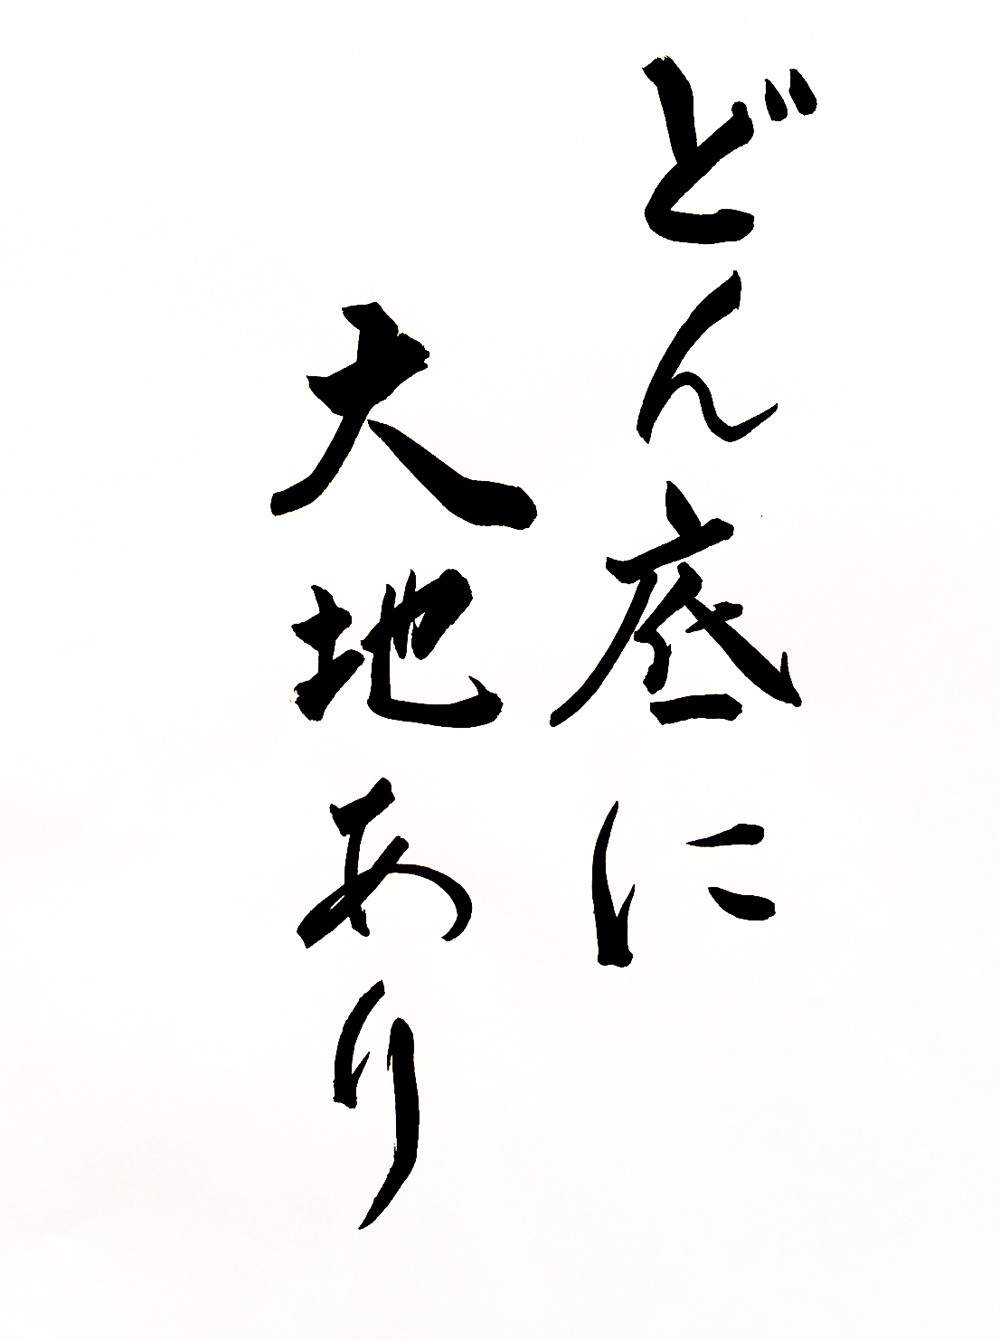 どん底に
大地あり